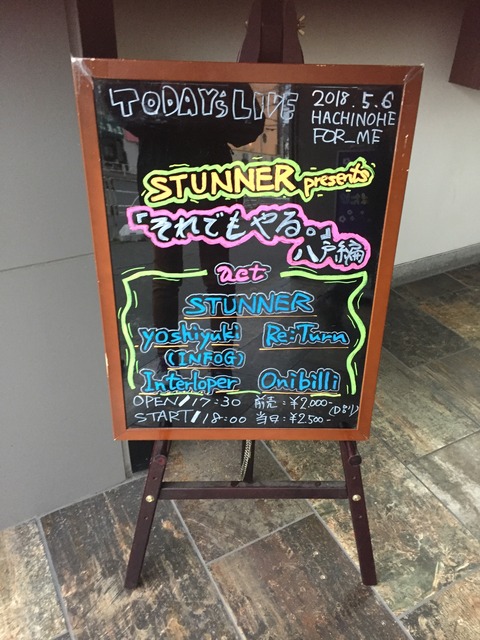 TODAY's LIVE
2018.5.6
HACHINOHE
FOR_ME
STUNNER presents
「それでもやる。」
八戸編
act
STUNNER
yoshiyuki Re:Turn
(INFOG)
Interloper Onibilli
OPEN//17:30 前売:¥2,000-
START//18:00 当日:¥2,500-
(D別)